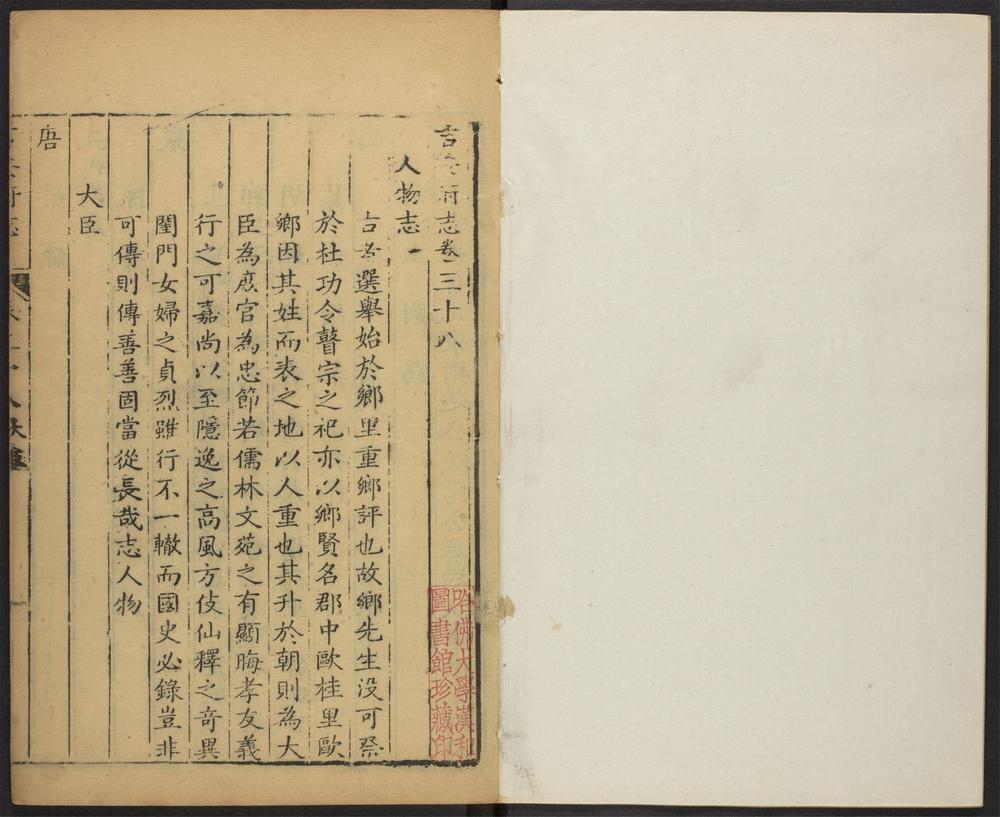 吉安府志卷三十八
人物志一
古者選舉始於鄉里重鄉評也故鄉先生没可祭
於杜功令瞽宗之祀亦以鄉賢名郡中歐桂里歐
鄉因其姓而表之地以人重也其升於朝則為大
臣為庶官為忠節若儒林文苑之有顯晦孝友義
行之可嘉尚以至隱逸之高風方伎仙釋之奇異
閨門女婦之貞烈雖行不一轍而國史必錄豈非
可傳則傳善善固當從長哉志人物
大臣
唐
哈佛大學漢和
圖書館珍藏印